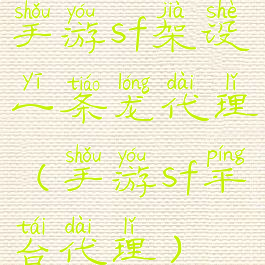 shǒu yóu jià shè
手游sf架设
yī tiáo lóng dài lǐ
一条龙代理
shǒu yóu píng
（手游sf平
tái dài lǐ
台代理）